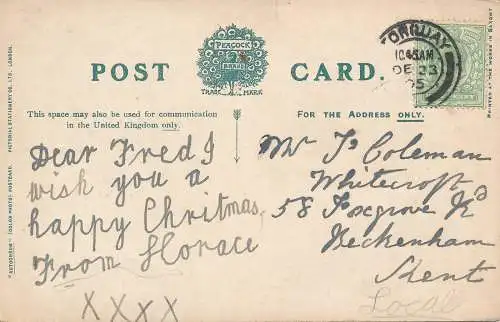 POST CARD.
PEACOCK
BRAND
TRADE MARK
This space may also be used for communication
in the United Kingdom only.
FOR THE ADDRESS ONLY.
Dear Fred I
wish you a
happy Chritmas
From Horace
XXXX
TORQUAY
10.45AM
DE 23
05
Mr F. Coleman
Whitecroft
58 Foxgrove Rd
Beckenham
Kent
Local
"AUTOCHROM" (COLOUR PHOTO) POSTCARD. PICTORIAL STATIONERY CO., LTD., LONDON.
PRINTED AT THE WORKS IN SAXONY